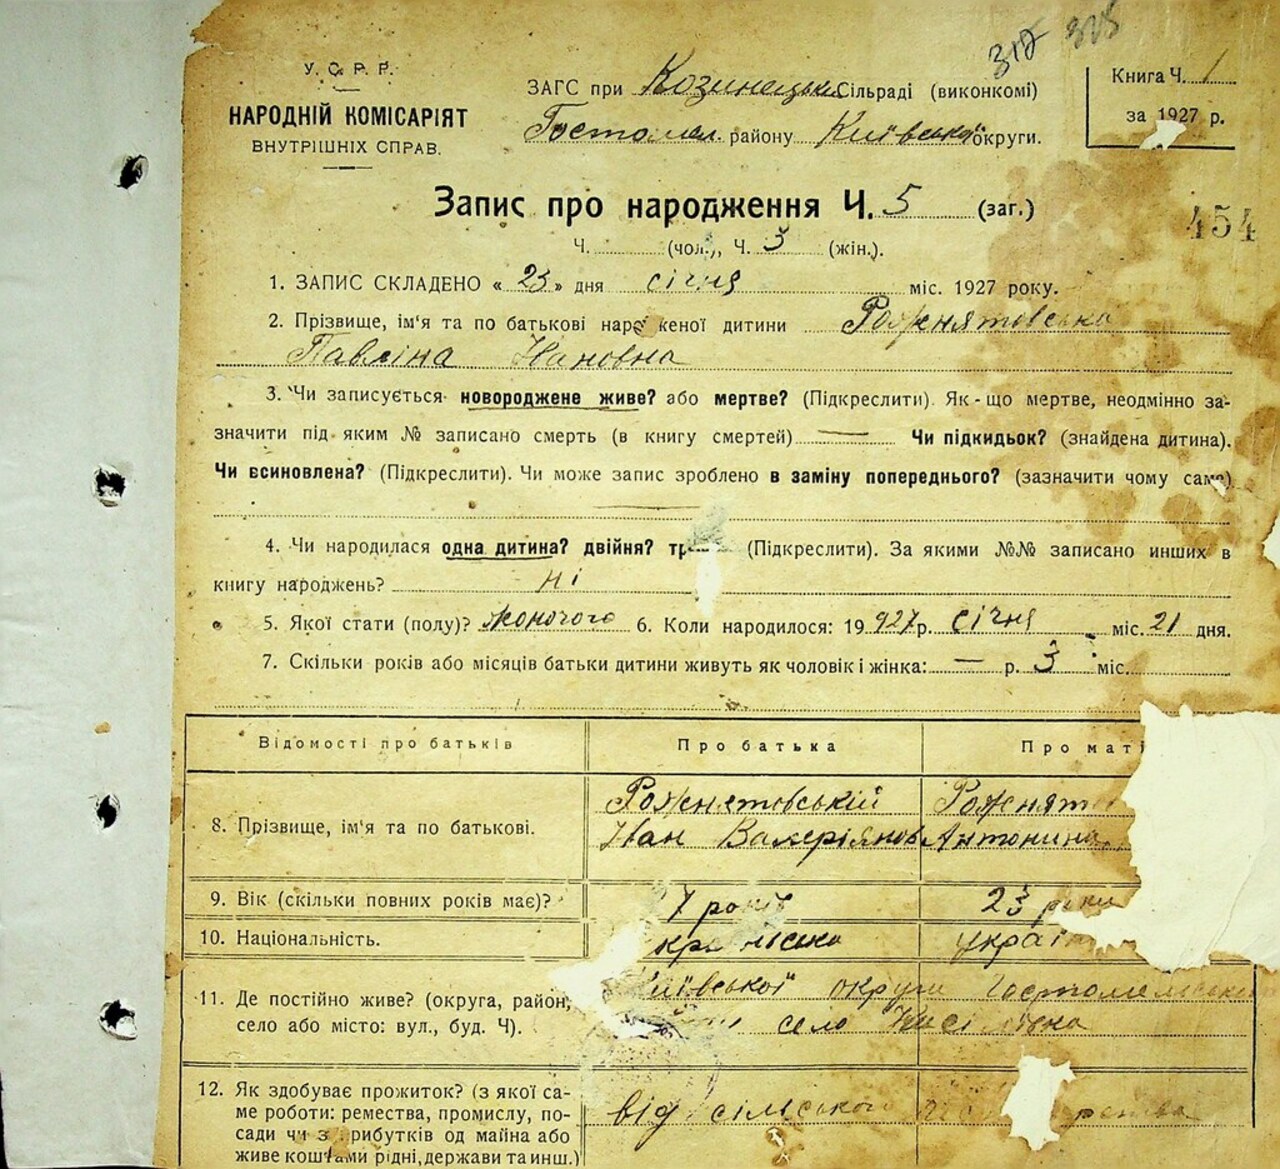 317 325
У. С. Р. Р.
НАРОДНІЙ КОМІСАРІЯТ
ВНУТРІШНІХ СПРАВ.
ЗАГС при Козинецькій Сільраді (виконкомі)
Гостомел. району Київської округи.
Книга Ч. 1
за 1927 р.
Запис про народження Ч. 5 (заг.)
454
Ч. (чол.), Ч. 3 (жін.).
1. ЗАПИС СКЛАДЕНО « 23 » дня січня міс. 1927 року.
2. Прізвище, ім'я та по батькові народженої дитини Рожнятовська
Павліна Івановна
3. Чи записується новороджене живе? або мертве? (Підкреслити). Як-що мертве, неодмінно за-
значити під яким № записано смерть (в книгу смертей) — Чи підкидьок? (знайдена дитина).
Чи всиновлена? (Підкреслити). Чи може запис зроблено в заміну попереднього? (зазначити чому саме)
4. Чи народилася одна дитина? двійня? (Підкреслити). За якими №№ записано инших в
книгу народжень? ні
5. Якої стати (полу)? жіночого 6. Коли народилося: 1927 р. січня міс. 21 дня.
7. Скільки років або місяців батьки дитини живуть як чоловік і жінка: — р. 3 міс.
Відомості про батьків Про батька Про маті
8. Прізвище, ім'я та по батькові. Рожнятовській Рожнят
Іван Валеріянов Антонина
9. Вік (скільки повних років має)? 7 років 23 роки
10. Національність. країнська украї
11. Де постійно живе? (округа, район, Київської округи Гостомельсько
село або місто: вул., буд. Ч). село
12. Як здобуває прожиток? (з якої са-
ме роботи: ремества, промислу, по- від сільського
сади чи з прибутків од майна або
живе коштами рідні, держави та инш.)